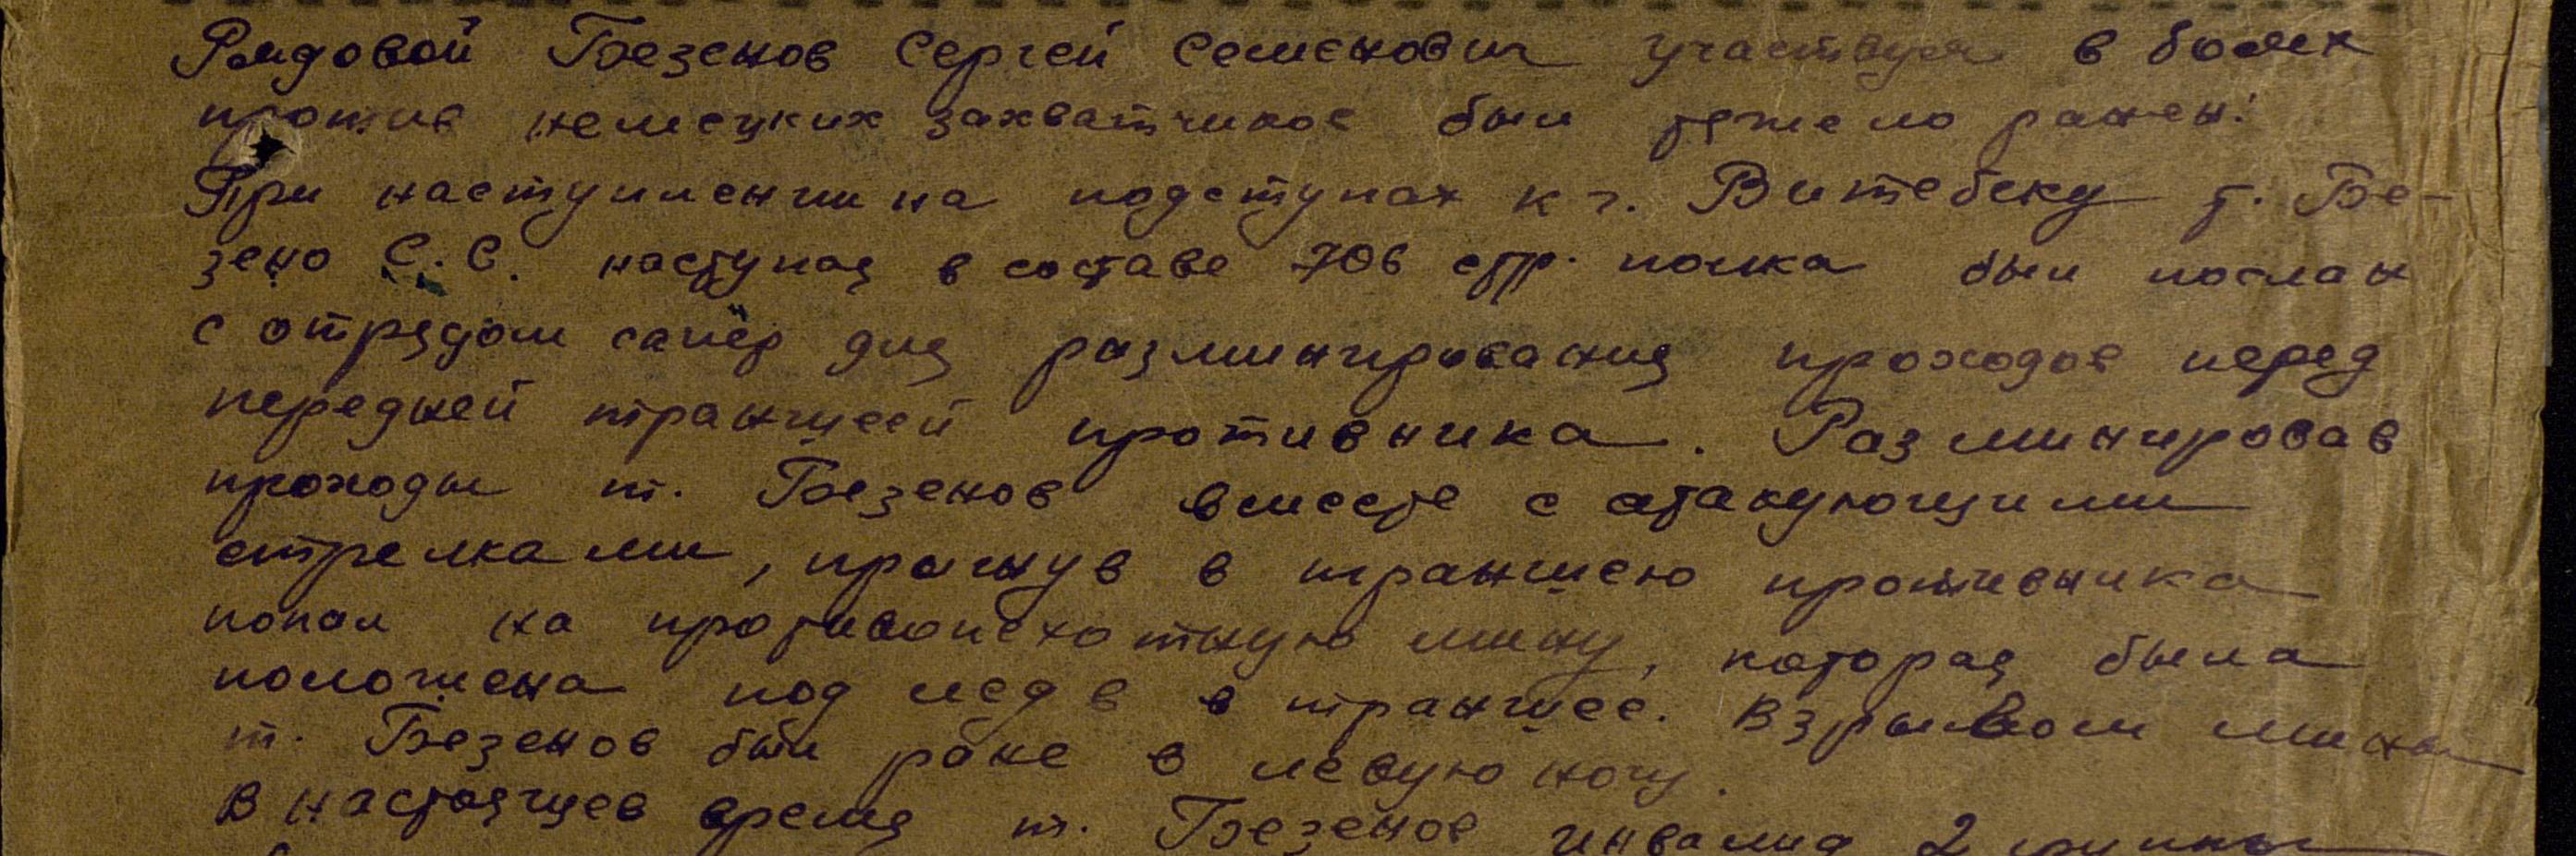 Рядовой Безенов Сергей Семенович участвуя в боях
против немецких захватчиков был тяжело ранен:
При наступлении на подступах к г. Витебску т. Бе-
зено С.С. наступая в составе 706 стр. полка был послан
с отрядом сапёр для разминирования проходов перед
передней траншеей противника. Разминировав
проходы т. Безенов вместе с атакующими
стрелками, прыгнув в траншею противника
попал на противопехотную мину, которая была
положена под лед в в траншее. Взрывом мины
т. Безенов был ране в левую ногу.
В настоящев время т. Безенов инвалид 2 группы